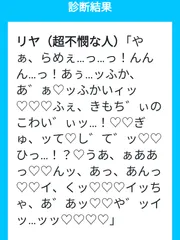 診断結果
リヤ（超不憫な人）「や
ぁ、らめぇ…っ…っ！んん
ん…っ！あぅ…ッふか、
あ゛ぁ♡ッふかいィッ
♡♡♡ふぇ、きもぢ゛ぃの
こわい゛ぃッ…！♡♡ぎ
ゅ、ッて♡し゛て゛ッ♡♡
ひっ…！？♡うあ、ぁああ
っ♡♡んッ、あっ、あんっ
♡♡イ、くッ♡♡♡イッち
ゃ、あ゛あッ♡♡や゛ッイ
ッ…ッッ♡♡♡♡」